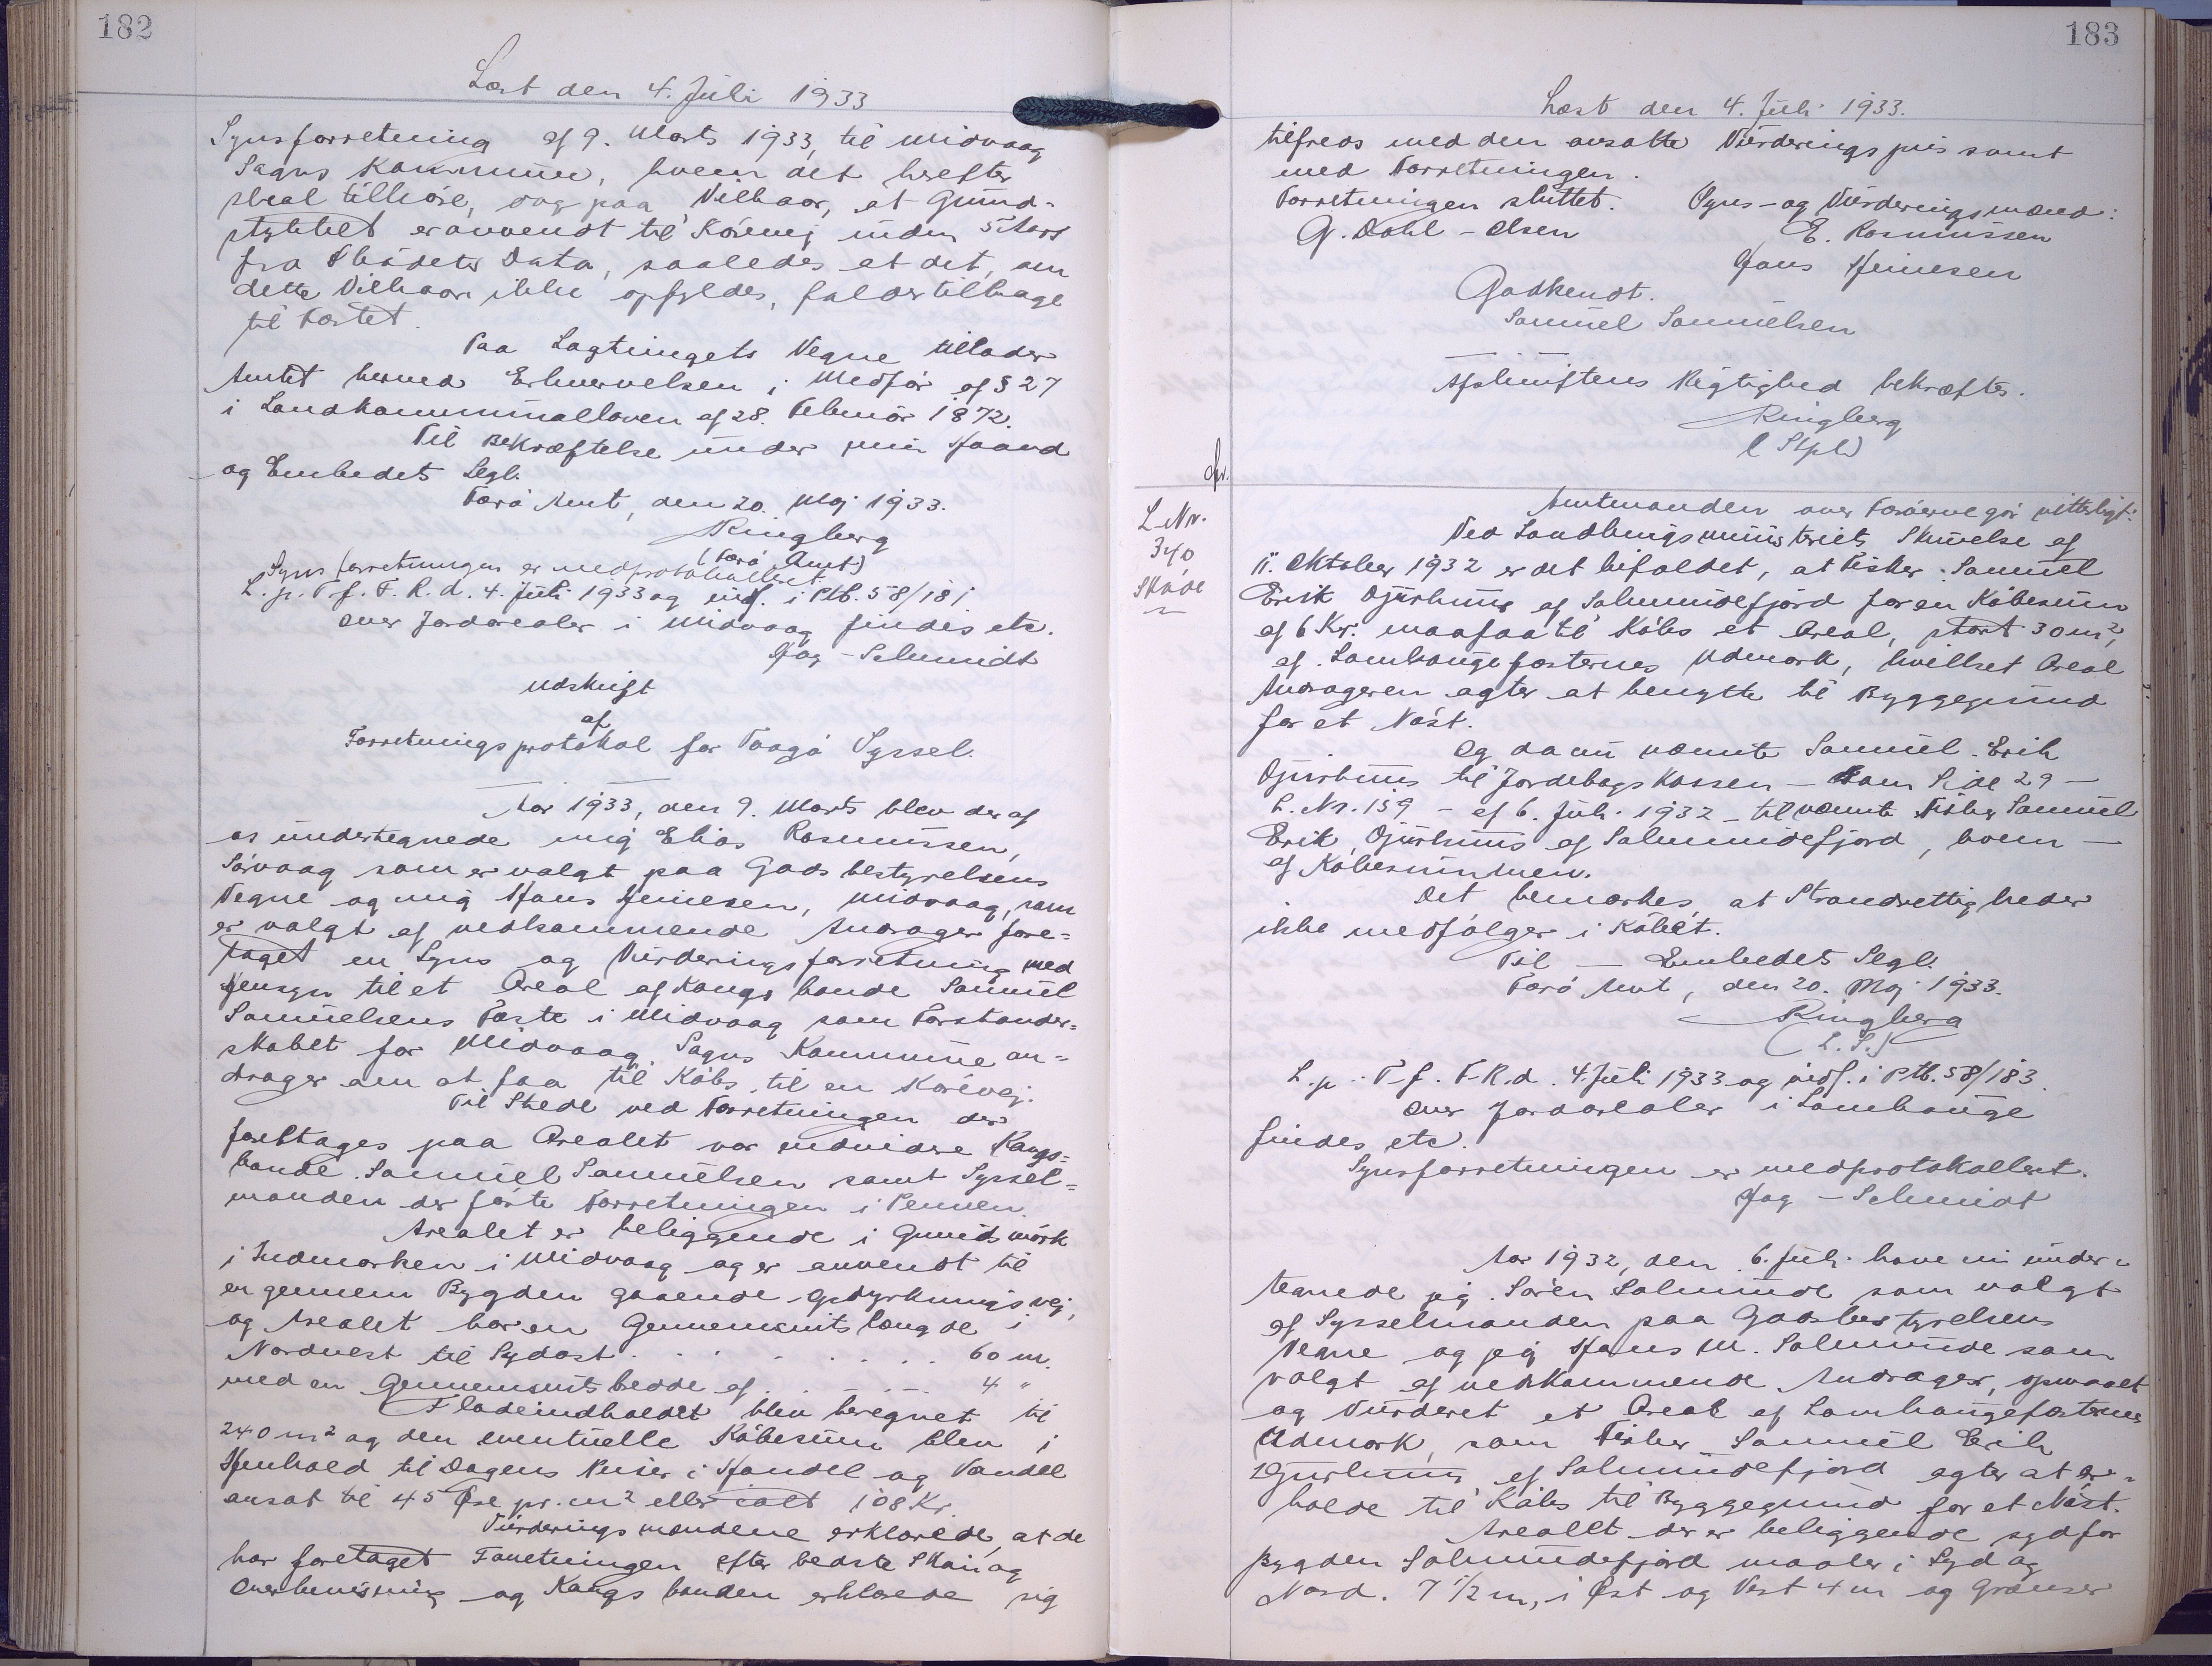 182
Læst den 4. Juli 1933
Synsforretning af 9. Marts 1933, til Midvaag
Sagns Kommune, hvem det herefter
skal tilhöre, dog paa Vilkaar, at Grund-
stykket er anvendt til Körevej inden 5 Aars
fra Sködets Data, saaledes at det, om
dette Vilkaar ikke opfyldes, falder tilbage
til Fæstet.
Paa Lagtingets Vegne tillader
Amtet herved Erhvervelsen i Medför af § 27
i Landkommunalloven af 28. Februar 1872.
Til Bekræftelse under min Haand
og Embedets Segl.
Færö Amt, den 20. Maj 1933.
Ringberg
(Færö Amt)
Synsforretningen er medprotokolleret
L. p. T. f. F. R. d. 4. Juli 1933 og indf. i Ptb. 58/181
over Jordarealer i Midvaag findes etc.
Jag - Schmidt
Udskrift
af
Forretningsprotokol for Vaagö Syssel.
Aar 1933, den 9. Marts blev der af
os undertegnede mig Elias Rasmussen,
Sörvaag som er valgt paa Godsbestyrelsens
Vegne og mig Hans Heinesen, Midvaag, som
er valgt af vedkommende Andrager fore-
taget en Syns og Vurderingsforretning med
Hensyn til et Areal af Kongsbonde Samuel
Samuelsens Fæste i Midvaag som Forstander-
skabet for Midvaag, Sagns Kommune an-
drager om at faa til Köbs til en Körevej.
Til Stede ved Forretningen der
foretages paa Arealet var endvidere Kongs-
bonde Samuel Samuelsen samt Syssel-
manden der förte Forretningen i Pennen.
Arealet er beliggende i
i Indmarken i Midvaag og er anvendt til
en gennem Bygden gaaende Opdyrkningsvej,
og Arealet har en Gennemsnitslængde i
Nordvest til Sydöst . . . . . . . . 60 m.
med en Gennemsnitsbredde af . . . . 4 "
Fladeindholdet blev beregnet til
240 m² og den eventuelle Köbesum blev i
Henhold til Dagens Priser i Handel og Vandel
ansat til 45 Øre pr. m² eller ialt 108 Kr.
Vurderingsmændene erklærede, at de
har foretaget Forretningen efter bedste Skön og
Overbevisning og Kongsbonden erklærede sig
183
Læst den 4. Juli 1933.
tilfreds med den ansatte Vurderingspris samt
med Forretningen.
Forretningen sluttet. Syns- og Vurderingsmænd:
G. Dahl-Olsen E. Rasmussen
Hans Heinesen
Godkendt.
Samuel Samuelsen
Afskriftens Rigtighed bekræftes.
Ringberg
L. Nr.
340
Sköde
Amtmanden over Færöerne gör vitterligt:
Ved Landbrugsministeriets Skrivelse af
11. Oktober 1932 er det bifaldet, at Fisker Samuel
Erik Djurhuus af Salmundefjord for en Köbesum
af 6 Kr. maa faa til Köbs et Areal, stort 30 m²,
af Lambhaugefæsternes Udmark, hvilket Areal
Andrageren agter at benytte til Byggegrund
for et Nöst.
Og da nu nævnte Samuel Erik
Djurhuus til Jordebogskassen - som Side 29 -
L. Nr. 159 - af 6. Juli 1932 - til nævnte Fisker Samuel
Erik Djurhuus af Salmundefjord, hvem -
af Köbesummen.
Det bemærkes, at Strandrettigheder
ikke medfölger i Köbet.
Til - Embedets Segl.
Færö Amt, den 20. Maj 1933.
Ringberg
(L. S.)
L. p. T. f. F. R. d. 4. Juli 1933 og indf. i Ptb. 58/183.
over Jordarealer i Lambhauge
findes etc.
Synsforretningen er medprotokolleret.
Jag - Schmidt
Aar 1932, den 6. Juli have vi under-
tegnede jeg Sören Salmunde som valgt
af Sysselmanden paa Godsbestyrelsens
Vegne og jeg Hans M. Salmunde som
valgt af vedkommende Andrager, opmaalt
og Vurderet et Areal af Lambhaugefæsternes
Udmark, som Fisker Samuel Erik
Djurhuus af Salmundefjord agter at er-
holde til Köbs til Byggegrund for et Nöst.
Arealet der er beliggende sydfor
Bygden Salmundefjord maaler i Syd og
Nord. 7 1/2 m, i Øst og Vest 4 m og Grænser